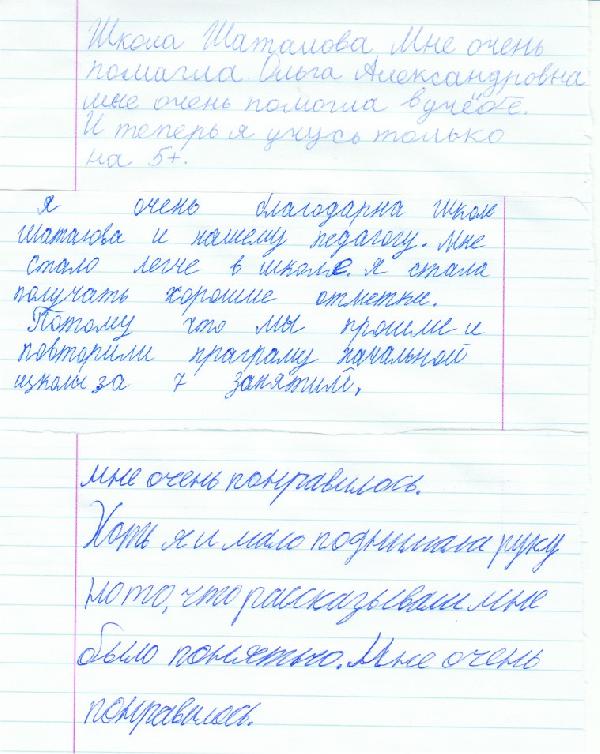 Школа Шаталова Мне очень
помагла Ольга Александровна
мне очень помогла в учёбе.
И теперь я учусь только
на 5+.
Я очень благодарна школе
Шаталова и нашему педагогу. Мне
стало легче в школе. Я стала
получать хорошие отметки.
Потому что мы прошли и
повторили праграму начальной
школы за 7 занятий.
мне очень понравилось.
Хоть я и мало поднимала руку
но то, что рассказывали мне
было понятно. Мне очень
понравилось.